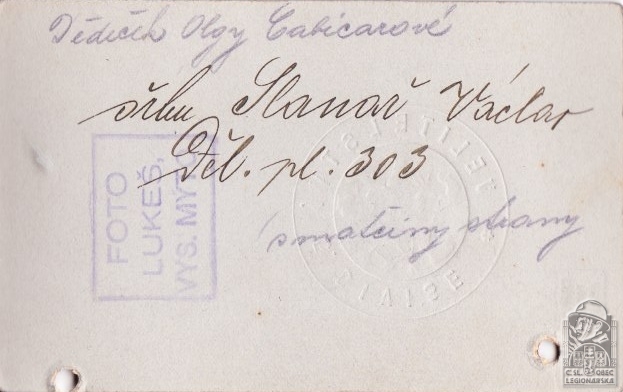 Dědeček Olgy Cabicarové
Slanař Václav
Děl. pl. 303
s matčiny strany
FOTO
LUKEŠ,
VYS. MÝTO
ČS. OBEC
LEGIONÁŘSKÁ